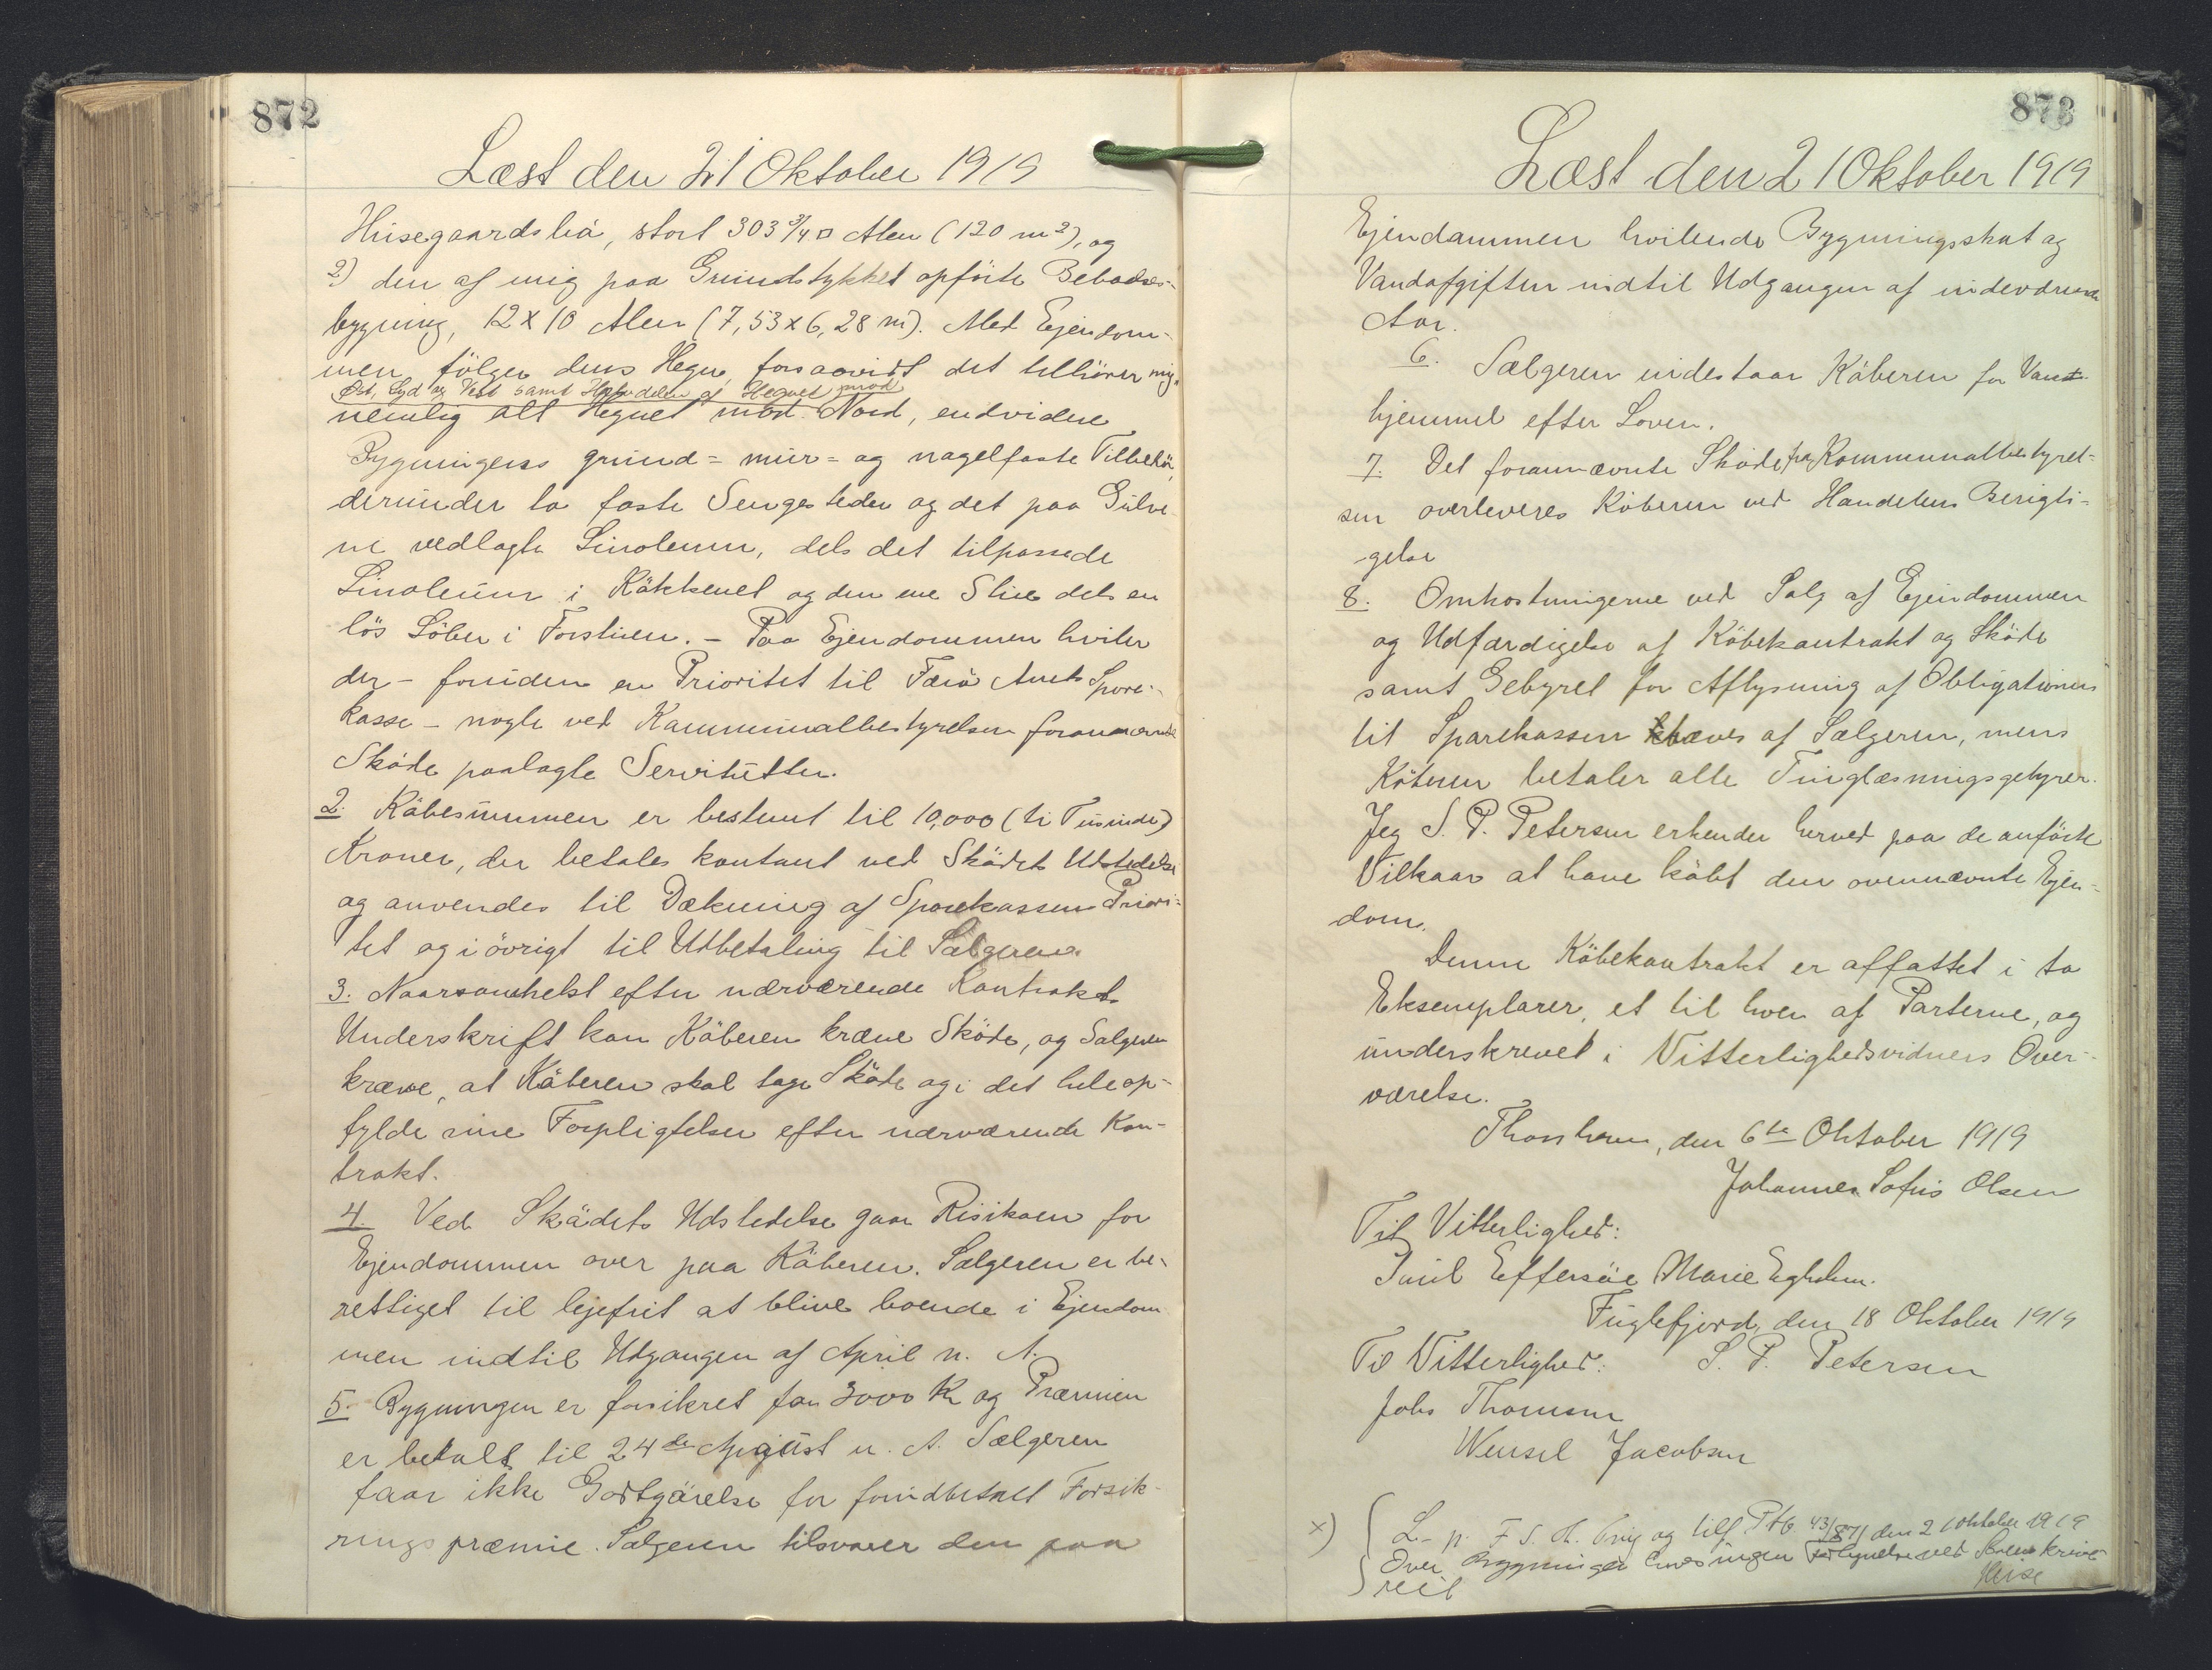 872
Læst den 21 Oktober 1919
Húsegaardsbø, stort 303 3/4 □ Alen (120 m2), og
2) den af mig paa Grundstykket opførte Beboelses-
bygning, 12 x 10 Alen (7,53 x 6,28 m). Med Ejendom-
men følger dens Hegn, forsaavidt det tilhører mig,
Øst, Syd og Vest samt Halvdelen af Hegnet mod
nemlig alt Hegnet mod Nord, endvidere
Bygningens grund- mur- og nagelfaste Tilbehør,
derunder to faste Sengesteder og det paa Gulve
ne vedlagte Linoleum, dels det tilpassede
Linoleum i Køkkenet og den ene Stue dels en
løs Løber i Forstuen. - Paa Ejendommen hviler
der - foruden en Prioritet til Færø Amts Spare-
kasse - nogle ved Kommunalbestyrelsen forannævnte
Skøde paalagte Servitutter.
2. Købesummen er bestemt til 10,000 (ti Tusinde)
Kroner, der betales kontant ved Skødets Udstedelse
og anvendes til Dækning af Sparekassens Priori-
tet og i øvrigt til Udbetaling til Sælgeren.
3. Naarsomhelst efter nærværende Kontrakts
Underskrift kan Køberen kræve Skøde, og Sælgeren
kræve, at Køberen skal tage Skøde og i det hele op-
fylde sine Forpligtelser efter nærværende Kon-
trakt.
4. Ved Skødets Udstedelse gaar Risikoen for
Ejendommen over paa Køberen. Sælgeren er be-
rettiget til lejefrit at blive boende i Ejendom
men indtil Udgangen af April n. A.
5. Bygningen er forsikret for 3000 Kr og Præmien
er betalt til 24de August n. A. Sælgeren
faar ikke Godtgørelse for forudbetalt Forsik-
ringspræmie. Sælgeren tilsvarer den paa
873
Læst den 21 Oktober 1919
Ejendommen hvilende Bygningsskat og
Vandafgiften indtil Udgangen af indeværende
Aar.
6. Sælgeren indestaar Køberen for Vans-
hjemmel efter Loven.
7. Det forannævnte Skøde fra Kommunalbestyrel-
sen overleveres Køberen ved Handelens Berigti-
gelse
8. Omkostningerne ved Salg af Ejendommen
og Udfærdigelse af Købekontrakt og Skøde
samt Gebyret for Aflysning af Obligationen
til Sparekassen af Sælgeren, mens
Køberen betaler alle Tinglæsningsgebyrer.
Jeg S. P. Petersen erkender herved paa de anførte
Vilkaar at have købt den ovennævnte Ejen-
dom.
Denne Købekontrakt er affattet i to
Eksemplarer, et til hver af Parterne, og
underskrevet i Vitterlighedsvidners Over-
værelse.
Thorshavn, den 6te Oktober 1919
Johannes Sofus Olsen
Til Vitterlighed:
Emil Effersøe Marie Egholm.
Fuglefjord, den 18 Oktober 1919
Til Vitterlighed: S. P. Petersen
Johs Thomsen
Wensel Jacobsen
x) L. p. F. S. H. og tilf. 43/871 den 21 Oktober 1919
Over Bygningen haves ingen